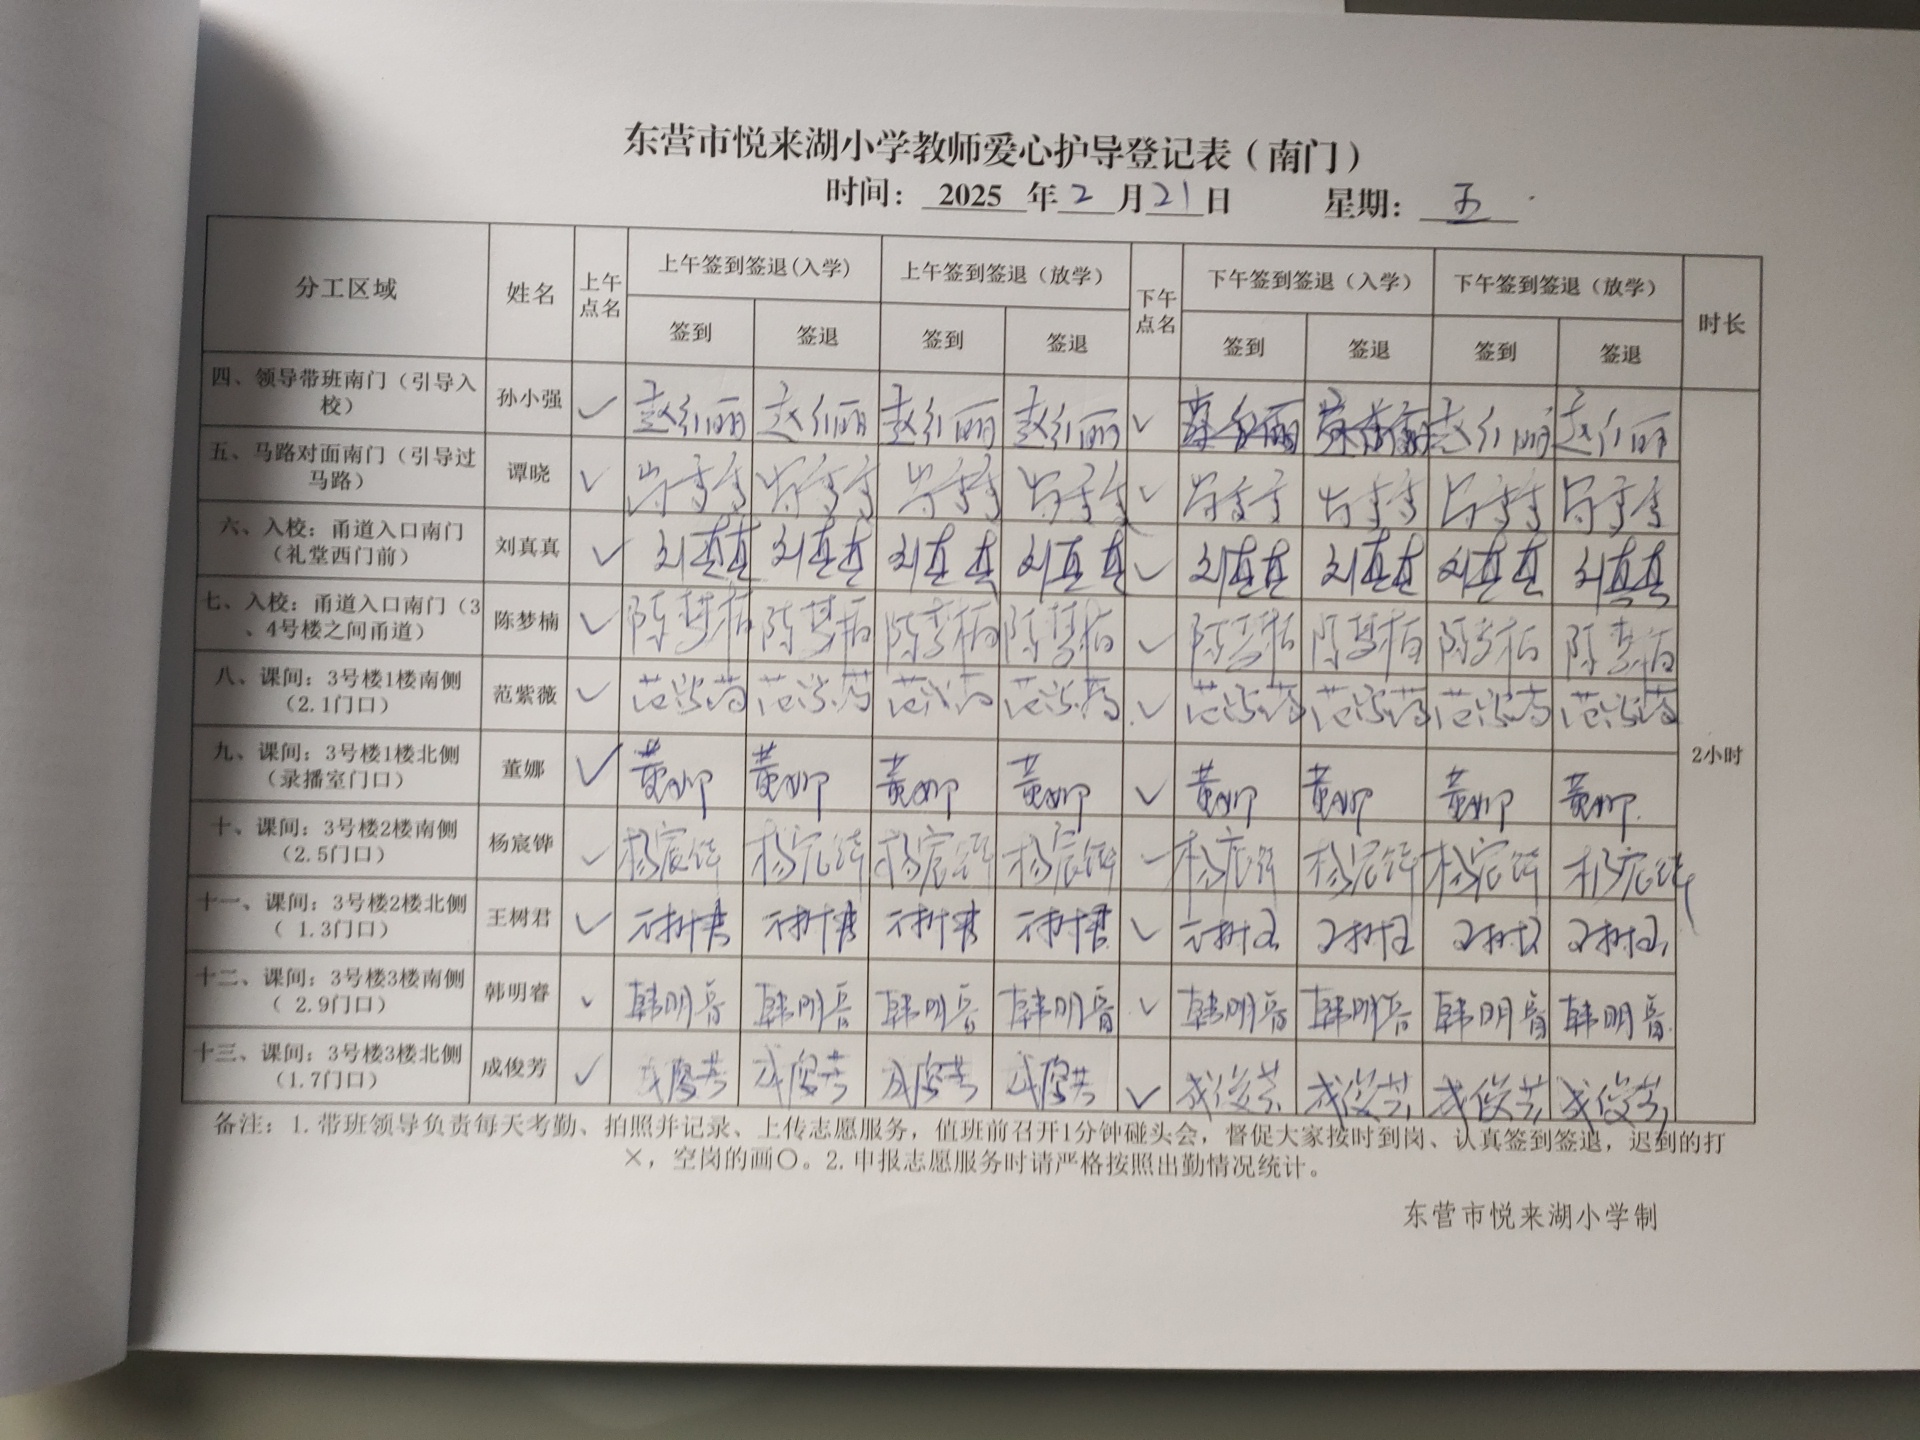 东营市悦来湖小学教师爱心护导登记表（南门）
时间： 2025 年 2 月 21 日 星期： 五
分工区域 姓名 上午点名 上午签到签退(入学) 上午签到签退（放学） 下午点名 下午签到签退（入学） 下午签到签退（放学） 时长
签到 签退 签到 签退 签到 签退 签到 签退
四、领导带班南门（引导入校） 孙小强 ✓ 赵红丽 赵红丽 赵红丽 赵红丽 ✓ 赵红丽 赵红丽
五、马路对面南门（引导过马路） 谭晓 ✓ ✓
六、入校：甬道入口南门（礼堂西门前） 刘真真 ✓ 刘真真 刘真真 刘真真 刘真真 ✓ 刘真真 刘真真 刘真真 刘真真
七、入校：甬道入口南门（3、4号楼之间甬道） 陈梦楠 ✓ 陈梦楠 陈梦楠 陈梦楠 陈梦楠 ✓ 陈梦楠 陈梦楠 陈梦楠 陈梦楠
八、课间：3号楼1楼南侧（2.1门口） 范紫薇 ✓ 范紫薇 范紫薇 范紫薇 范紫薇 ✓ 范紫薇 范紫薇 范紫薇 范紫薇
九、课间：3号楼1楼北侧（录播室门口） 董娜 ✓ 董娜 董娜 董娜 董娜 ✓ 董娜 董娜 董娜 董娜
2小时
十、课间：3号楼2楼南侧（2.5门口） 杨宸铧 ✓ 杨宸铧 杨宸铧 杨宸铧 杨宸铧 ✓ 杨宸铧 杨宸铧 杨宸铧 杨宸铧
十一、课间：3号楼2楼北侧（ 1.3门口） 王树君 ✓ 王树君 王树君 王树君 王树君 ✓ 王树君 王树君 王树君 王树君
十二、课间：3号楼3楼南侧（ 2.9门口） 韩明睿 ✓ 韩明睿 韩明睿 韩明睿 韩明睿 ✓ 韩明睿 韩明睿 韩明睿 韩明睿
十三、课间：3号楼3楼北侧（1.7门口） 成俊芳 ✓ 成俊芳 成俊芳 成俊芳 成俊芳 ✓ 成俊芳 成俊芳 成俊芳 成俊芳
备注：1.带班领导负责每天考勤、拍照并记录、上传志愿服务，值班前召开1分钟碰头会，督促大家按时到岗、认真签到签退，迟到的打
×，空岗的画〇。2.申报志愿服务时请严格按照出勤情况统计。
东营市悦来湖小学制